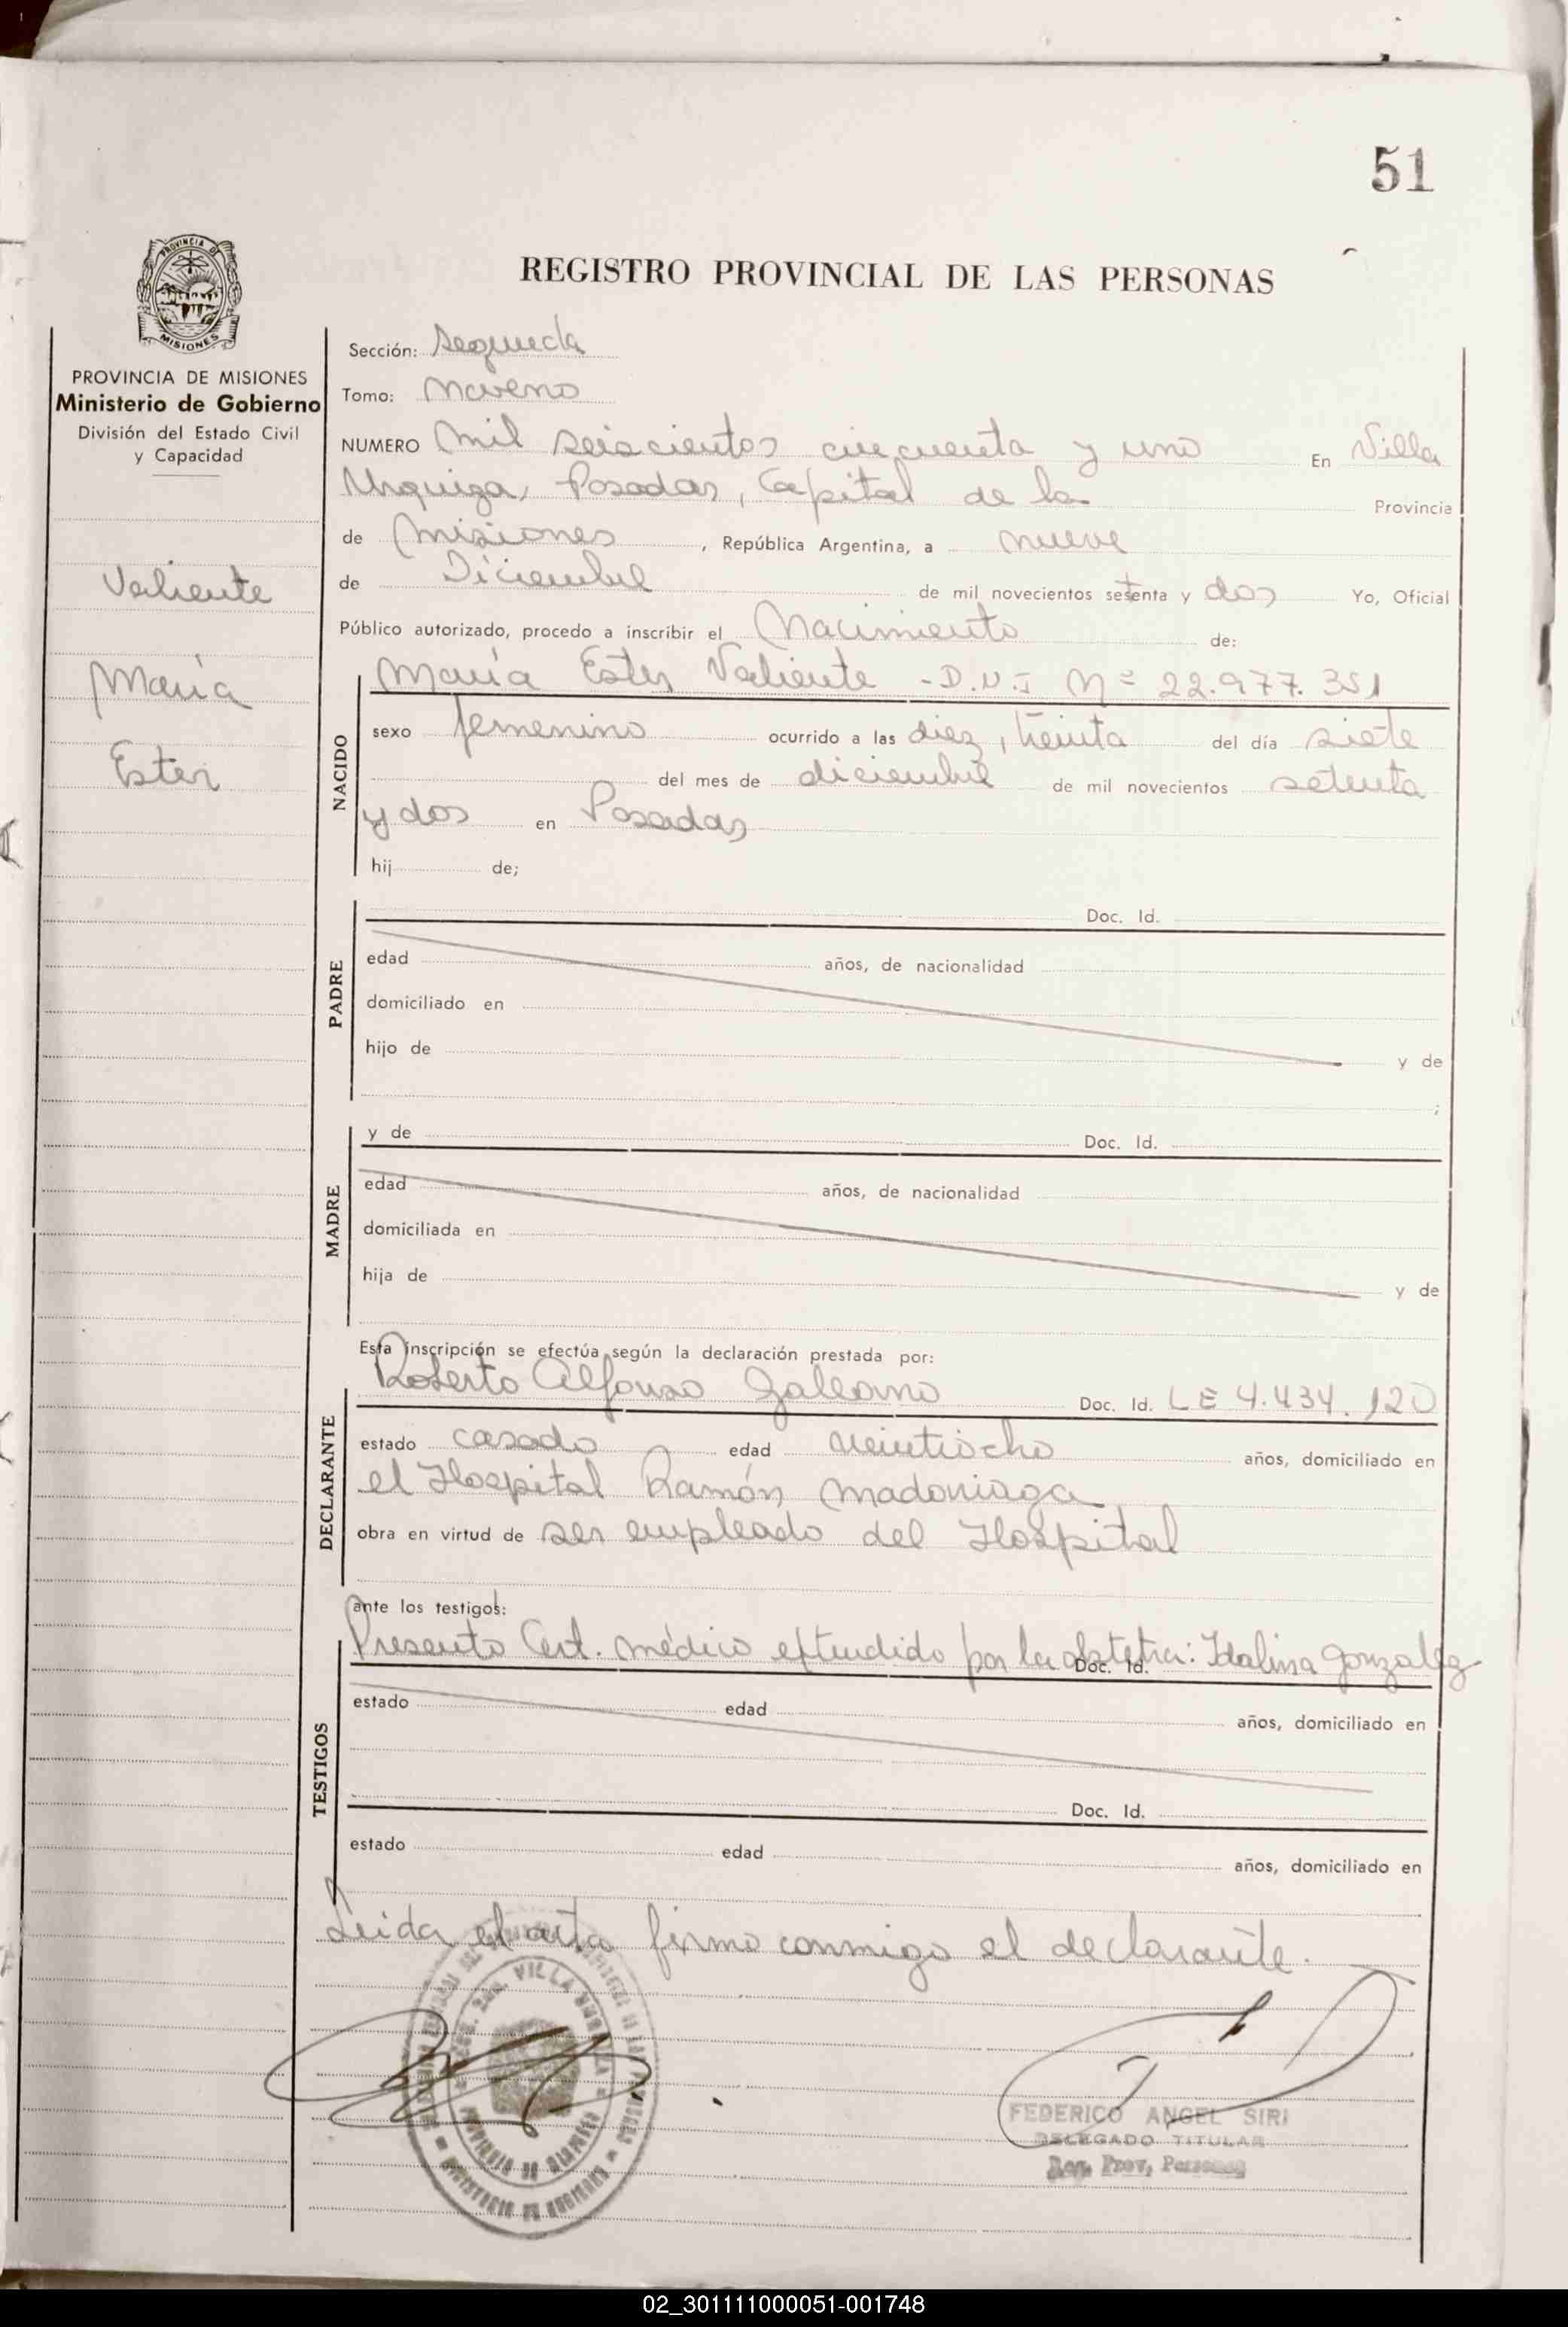 51
PROVINCIA DE
MISIONES
PROVINCIA DE MISIONES
Ministerio de Gobierno
División del Estado Civil
y Capacidad
Valiente
María
Ester
REGISTRO PROVINCIAL DE LAS PERSONAS
Sección: Segunda
Tomo: Noveno
NUMERO Mil seiscientos cincuenta y uno En Villa
Urquiza, Posadas, Capital de la Provincia
de Misiones, República Argentina, a nueve
de Diciembre de mil novecientos setenta y dos Yo, Oficial
Público autorizado, procedo a inscribir el Nacimiento de:
María Ester Valiente - D.N.I Nº 22.977.351
NACIDO
sexo femenino ocurrido a las diez, treinta del día siete
del mes de diciembre de mil novecientos setenta
y dos en Posadas
hij de;
PADRE
Doc. Id.
edad años, de nacionalidad
domiciliado en
hijo de y de
;
MADRE
y de Doc. Id.
edad años, de nacionalidad
domiciliada en
hija de y de
Esta inscripción se efectúa según la declaración prestada por:
DECLARANTE
Roberto Alfonso Galeano Doc. Id. LE 4.434.120
estado casado edad veintiocho años, domiciliado en
el Hospital Ramón Madoniaga
obra en virtud de ser empleado del Hospital
ante los testigos:
TESTIGOS
Presento Cert. médico extendido por la obstetra: Idalina Gonzalez
Doc. Id.
estado edad años, domiciliado en
Doc. Id.
estado edad años, domiciliado en
Leida el acta firmo conmigo el declarante.
VILLA
PROVINCIA DE MISIONES
MINISTERIO DE GOBIERNO
FEDERICO ANGEL SIRI
DELEGADO TITULAR
Reg. Prov. Personas
02_301111000051-001748